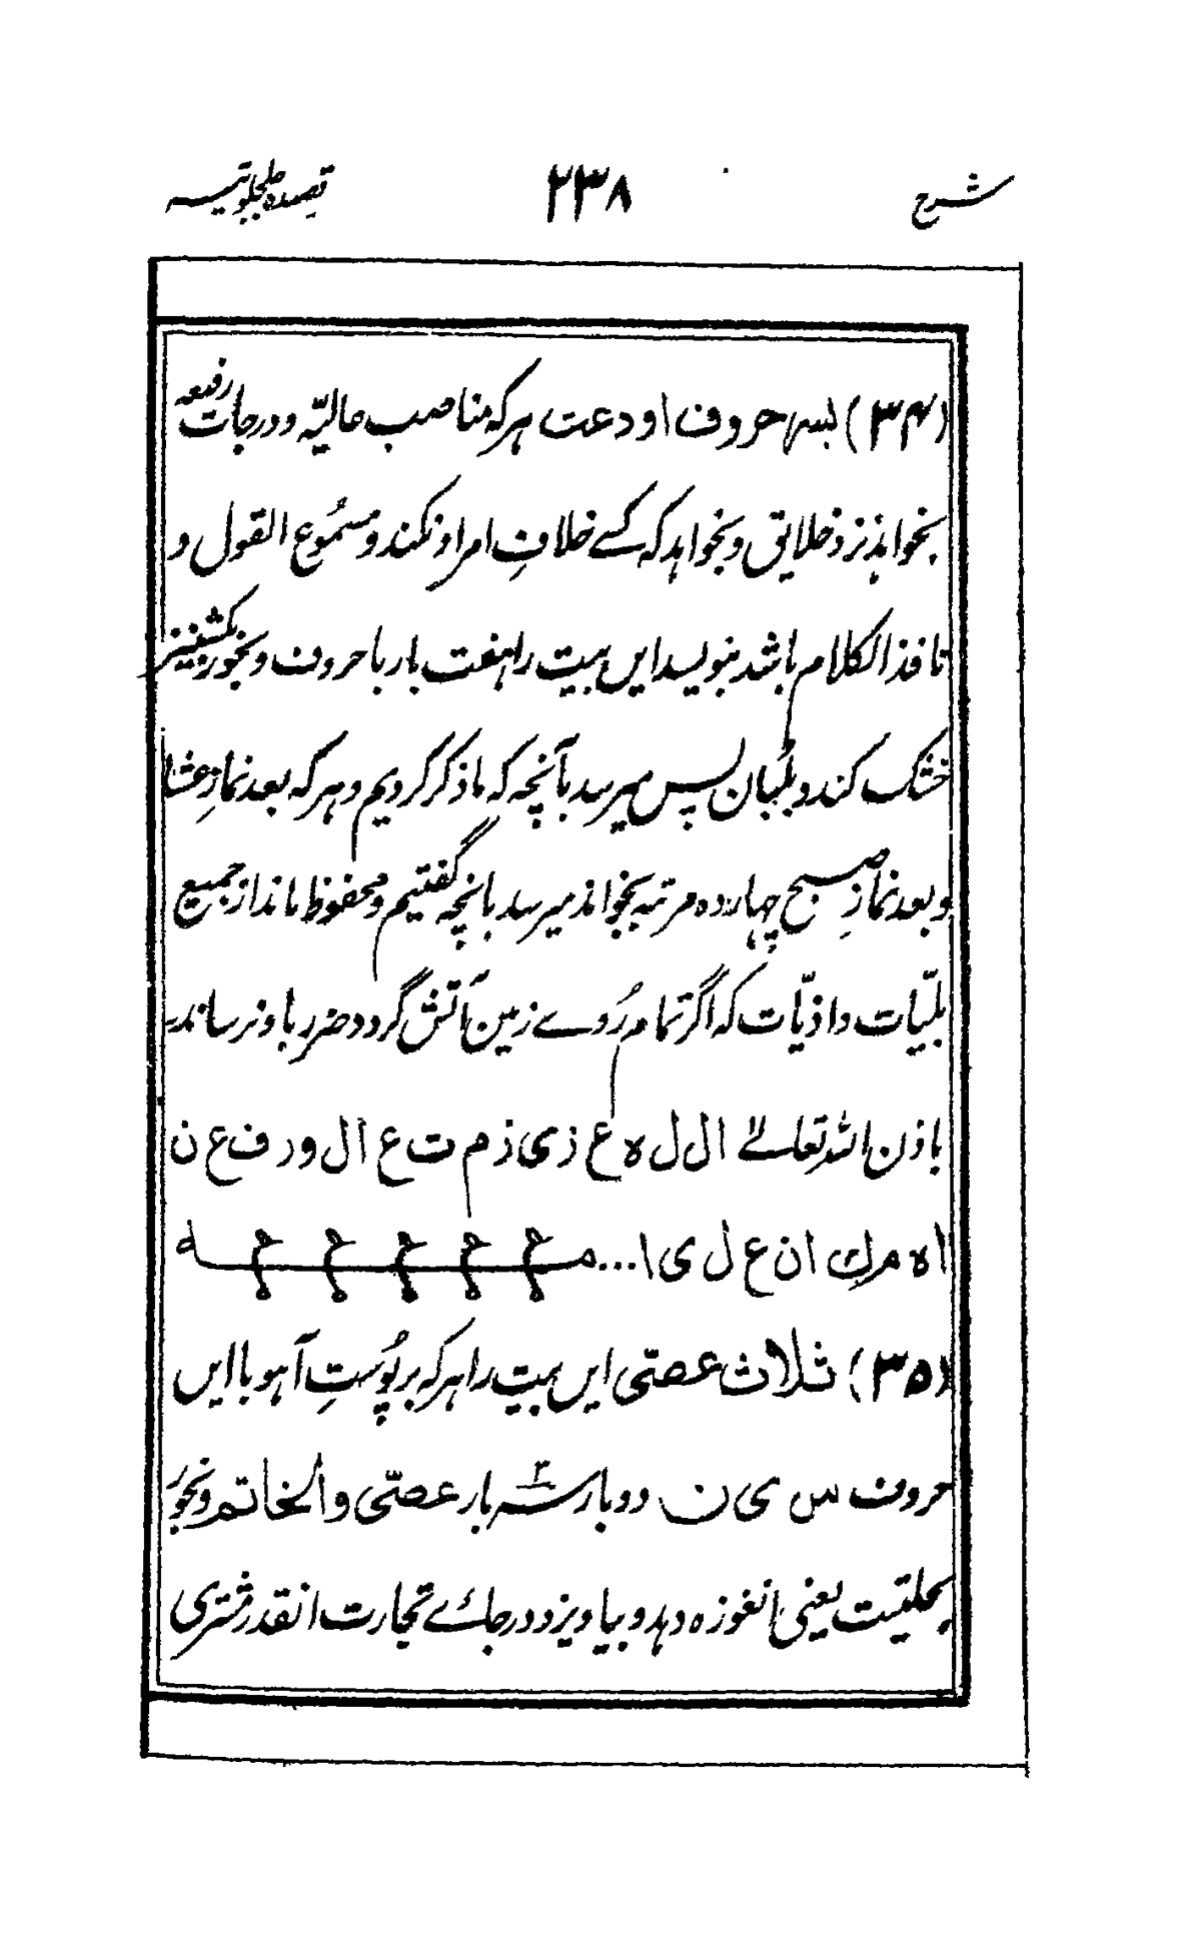 شرح ۲۳۸ قصیدہ جلجلوتیہ
(۳۴) بسر حروف اودعت ہرکہ مناصب عالیّہ و درجات رفیعہ
بخواہد نزد خلایق و بخواہد کہ کسے خلافِ امر او نکند و مسمُوع القول و
نافذ الکلام باشد بنویسد ایں بیت را ہفت بار با حروف و بخور بگشنیز
خشک کند و بلُبان پس میرسد بآنچہ کہ ما ذکر کردیم و ہر کہ بعد نمازِ عشا
و بعد نمازِ صبح چہاردہ مرتبہ بخواند میرسد بانچہ گفتیم و محفوظ ماند از جمیع
بلیّات و اذیّات کہ اگر تمام رُوے زمین آتش گردد ضرر باو نرساند
باذن اللہ تعالےٰ ال ل ہ ع ز ی ز م ت ع ال و ر ف ع ن
ا ہ م ك ا ن ع ل ی ا...
(۳۵) ثلاث عصّی ایں بیت را ہرکہ بر پُوستِ آہو با ایں
حروف س ی ن دو بار سہ بار عصّی و الخاتم و بخور
بحلتیت یعنی انغوزہ دہد و بیاویزد در جائے تجارت انقدر مشتری